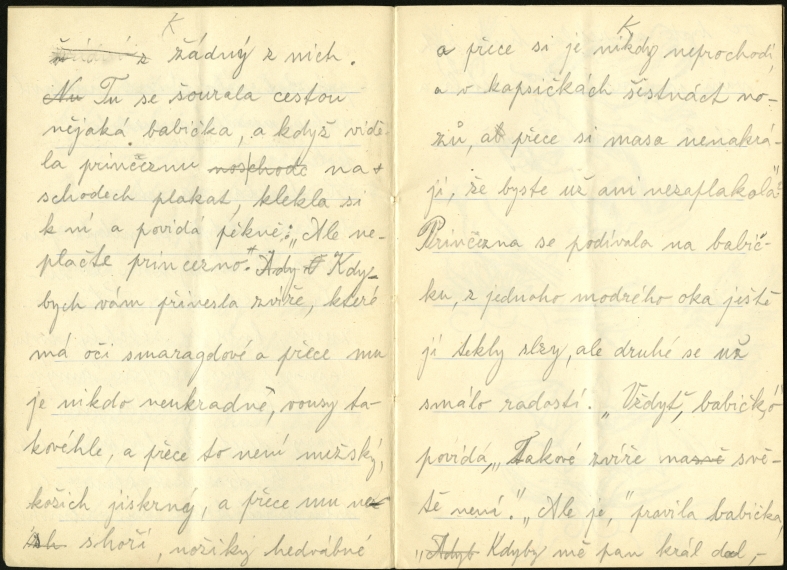 K
z žádný z nich.
Nu Tu se šourala cestou
nějaká babička, a když vidě-
la princeznu na
schodech plakat, klekla si
k ní a povídá pěkně: „Ale ne-
plačte princezno." Kdy-
bych vám přivesla zvíře, které
má oči smaragdové a přece mu
je nikdo neukradne, vousy ta-
kovéhle, a přece to není mužský,
kožich jiskrný, a přece mu ne-
shoří, nožiky hedvábné
K
a přece si je nikdy neprochodí,
a v kapsičkách šestnáct no-
žů, a přece si masa nenakrá-
jí, že byste už ani nezaplakala"
Princezna se podívala na babič-
ku, z jednoho modrého oka ještě
jí tekly slzy, ale druhé se už
smálo radostí. „Vždyť, babičkó"
povídá, „Takové zvíře na svě-
tě není." „Ale je," pravila babička,
„Kdyby mě pan král dal, -